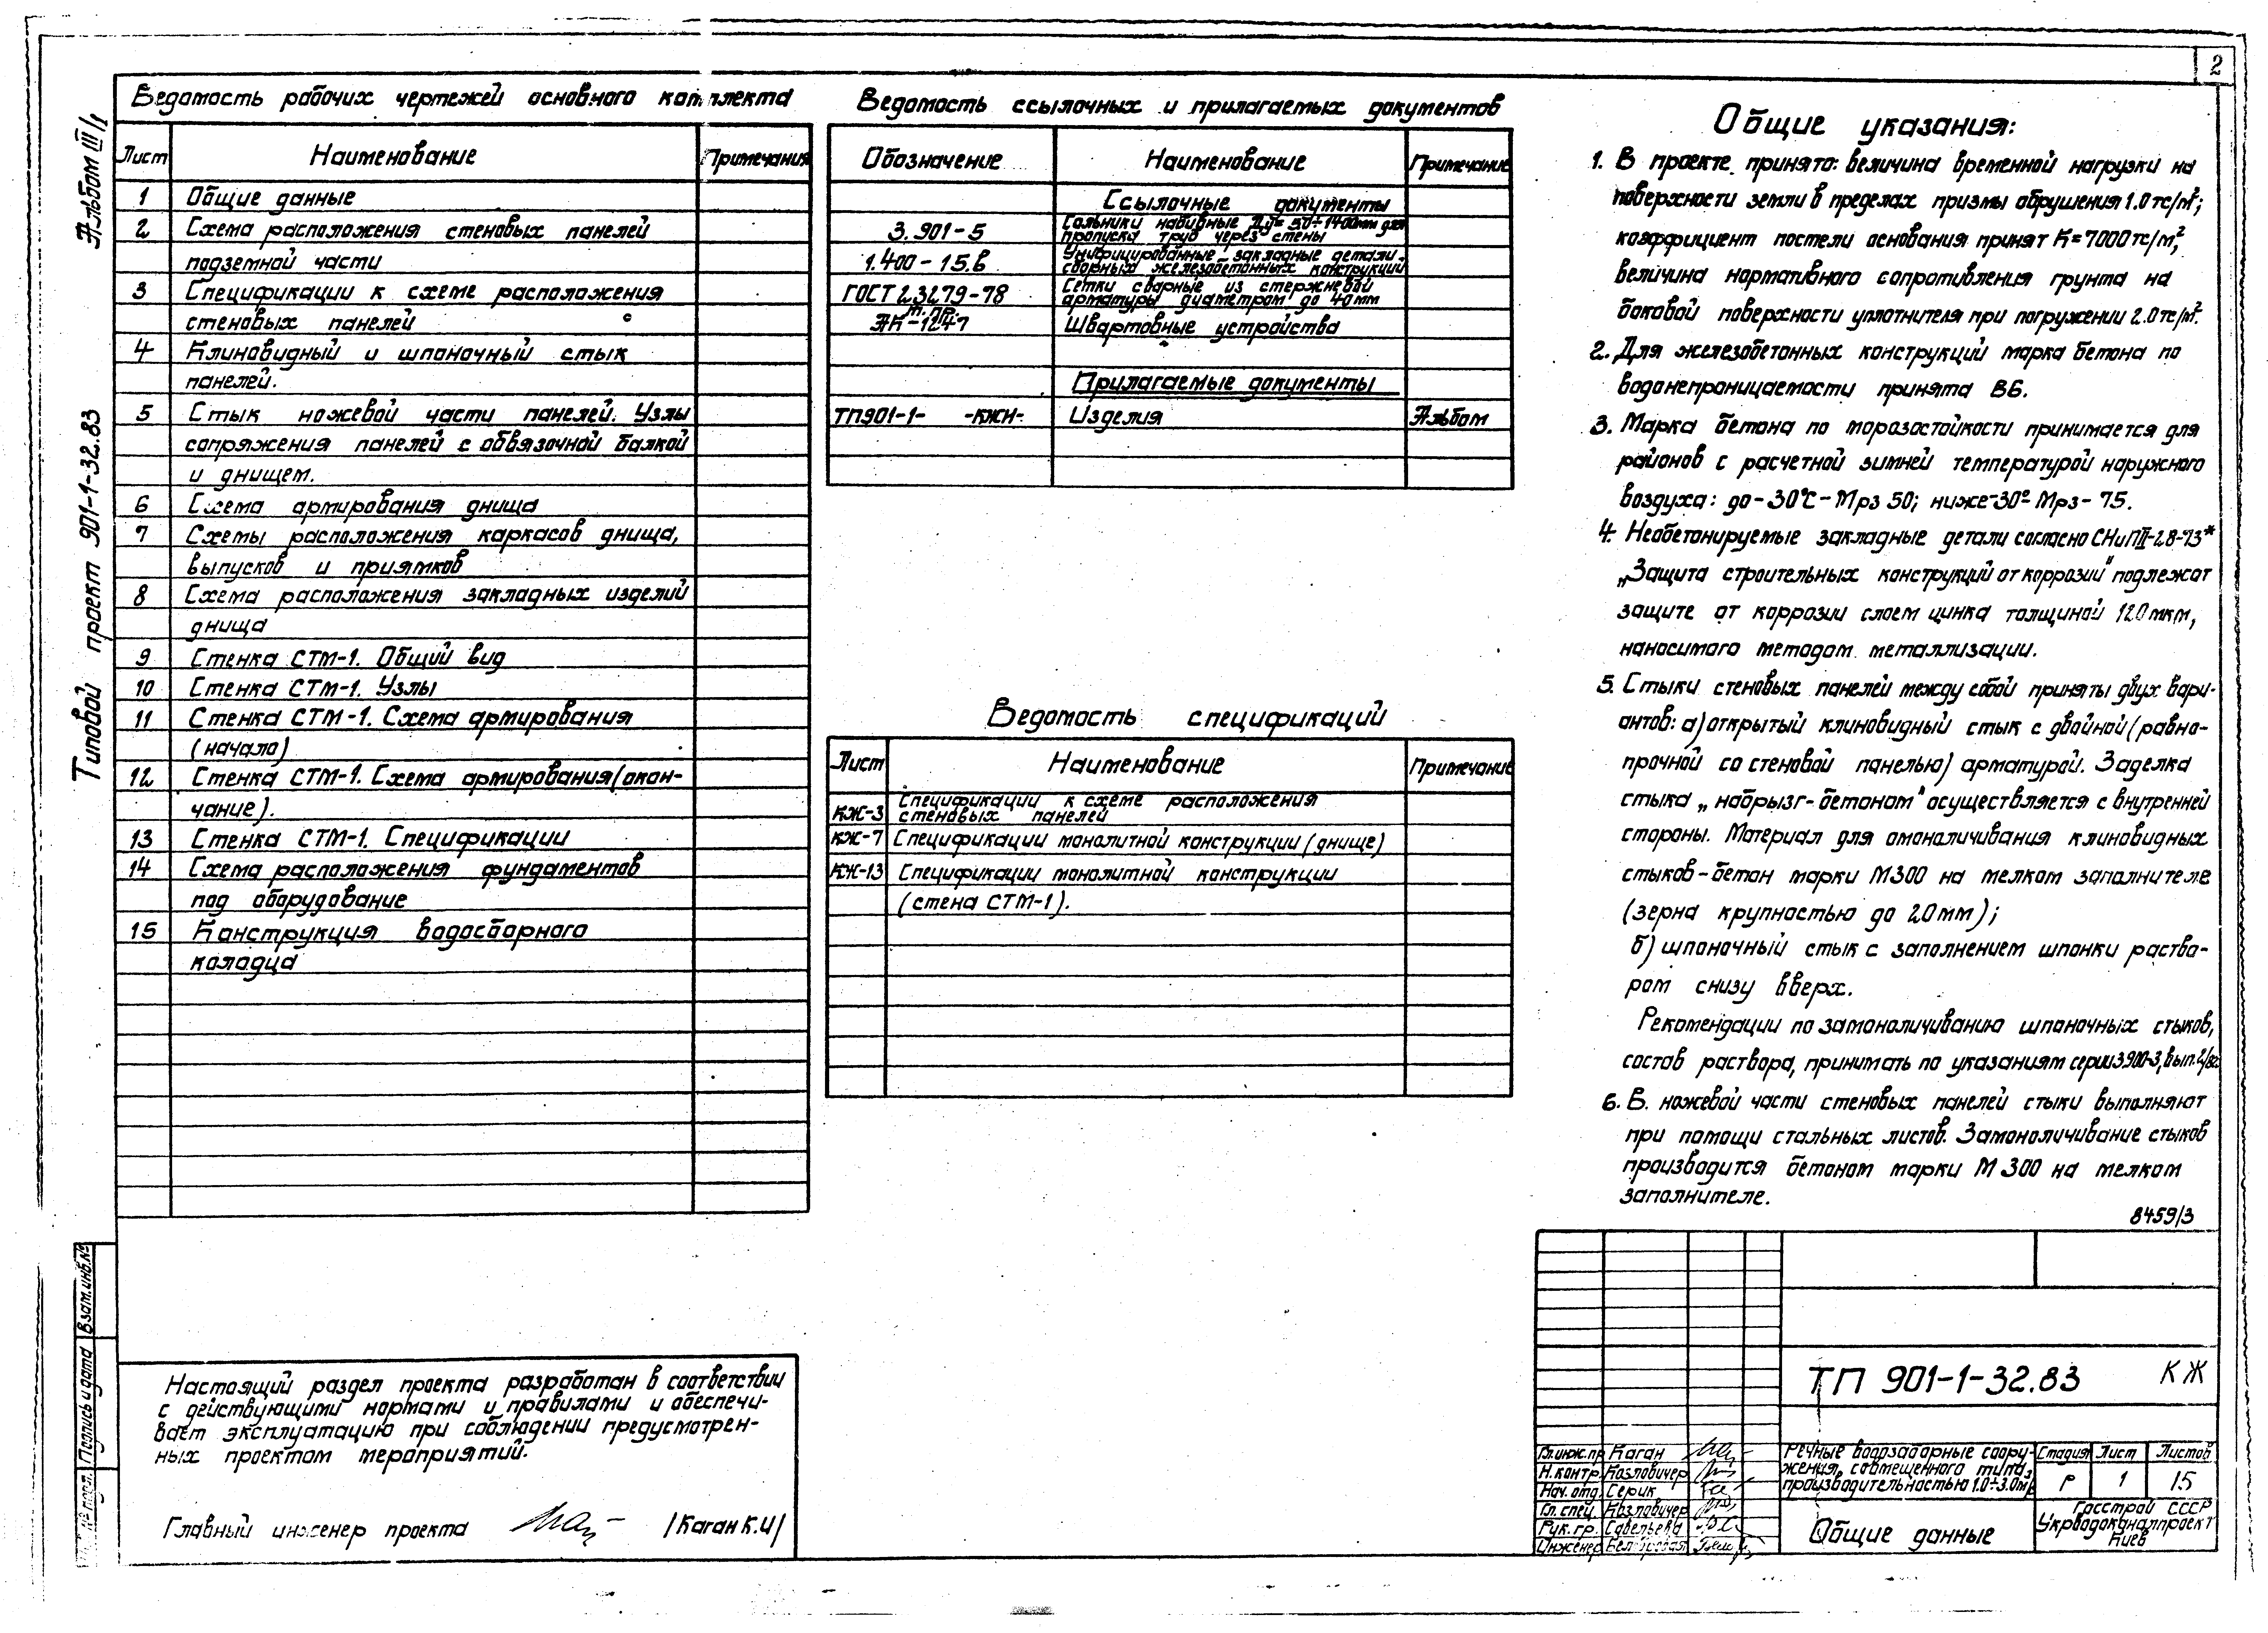 2
Альбом III/1
Типовой проект 901-1-32.83
Ведомость рабочих чертежей основного комплекта
Лист Наименование Примечания
1 Общие данные
2 Схема расположения стеновых панелей
подземной части
3 Спецификации к схеме расположения
стеновых панелей
4 Клиновидный и шпоночный стык
панелей.
5 Стык ножевой части панелей. Узлы
сопряжения панелей с обвязочной балкой
и днищем.
6 Схема армирования днища
7 Схемы расположения каркасов днища,
выпусков и приямков
8 Схема расположения закладных изделий
днища
9 Стенка СТМ-1. Общий вид
10 Стенка СТМ-1. Узлы
11 Стенка СТМ-1. Схема армирования
(начало)
12 Стенка СТМ-1. Схема армирования (окон-
чание).
13 Стенка СТМ-1. Спецификации
14 Схема расположения фундаментов
под оборудование
15 Конструкция водосборного
колодца
Ведомость ссылочных и прилагаемых документов
Обозначение Наименование Примечание
Ссылочные документы
3.901-5 Сальники набивные Ду=50÷1400мм для
пропуска труб через стены
1.400-15.в Унифицированные закладные детали
сборных железобетонных конструкций
ГОСТ 23279-78 Сетки сварные из стержневой
арматуры диаметром до 40мм
т. пр.
АК-1247 Швартовные устройства
Прилагаемые документы
ТП901-1- -КЖИ- Изделия Альбом
Ведомость спецификаций
Лист Наименование Примечание
КЖ-3 Спецификации к схеме расположения
стеновых панелей
КЖ-7 Спецификации монолитной конструкции (днище)
КЖ-13 Спецификации монолитной конструкции
(стена СТМ-1).
Общие указания:
1. В проекте принято: величина временной нагрузки на
поверхности земли в пределах призмы обрушения 1.0 тс/м²;
коэффициент постели основания принят К=7000 тс/м²,
величина нормативного сопротивления грунта на
боковой поверхности уплотнителя при погружении 2.0 тс/м².
2. Для железобетонных конструкций марка бетона по
водонепроницаемости принята В6.
3. Марка бетона по морозостойкости принимается для
районов с расчетной зимней температурой наружного
воздуха: до -30°С - Мрз 50; ниже -30° Мрз- 75.
4. Необетонируемые закладные детали согласно СНиП III-28-73*
„Защита строительных конструкций от коррозии" подлежат
защите от коррозии слоем цинка толщиной 120 мкм,
наносимого методом металлизации.
5. Стыки стеновых панелей между собой приняты двух вари-
антов: а) открытый клиновидный стык с двойной (равно-
прочной со стеновой панелью) арматурой. Заделка
стыка „набрызг-бетоном" осуществляется с внутренней
стороны. Материал для омоноличивания клиновидных
стыков-бетон марки М300 на мелком заполнителе
(зерна крупностью до 20мм);
б) шпоночный стык с заполнением шпонки раство-
ром снизу вверх.
Рекомендации по замоноличиванию шпоночных стыков,
состав раствора, принимать по указаниям серии 3.900-3, вып. 2/82
6. В ножевой части стеновых панелей стыки выполняют
при помощи стальных листов. Замоноличивание стыков
производится бетоном марки М 300 на мелком
заполнителе.
8459/3
Настоящий раздел проекта разработан в соответствии
с действующими нормами и правилами и обеспечи-
вает эксплуатацию при соблюдении предусмотрен-
ных проектом мероприятий.
Главный инженер проекта /Каган К.И/
Взам.инв.№
Подпись и дата
ТП 901-1-32.83 КЖ
Гл.инж.пр Каган
Н.контр. Козловичер
Нач.отд. Серик
Гл.спец. Козловичер
Рук.гр. Савельева
Инженер
Речные водозаборные соору-
жения совмещенного типа,
производительностью 1.0÷3.0м³/с
Стадия Лист Листов
Р 1 15
Общие данные
Госстрой СССР
Укрводоканалпроект
Киев